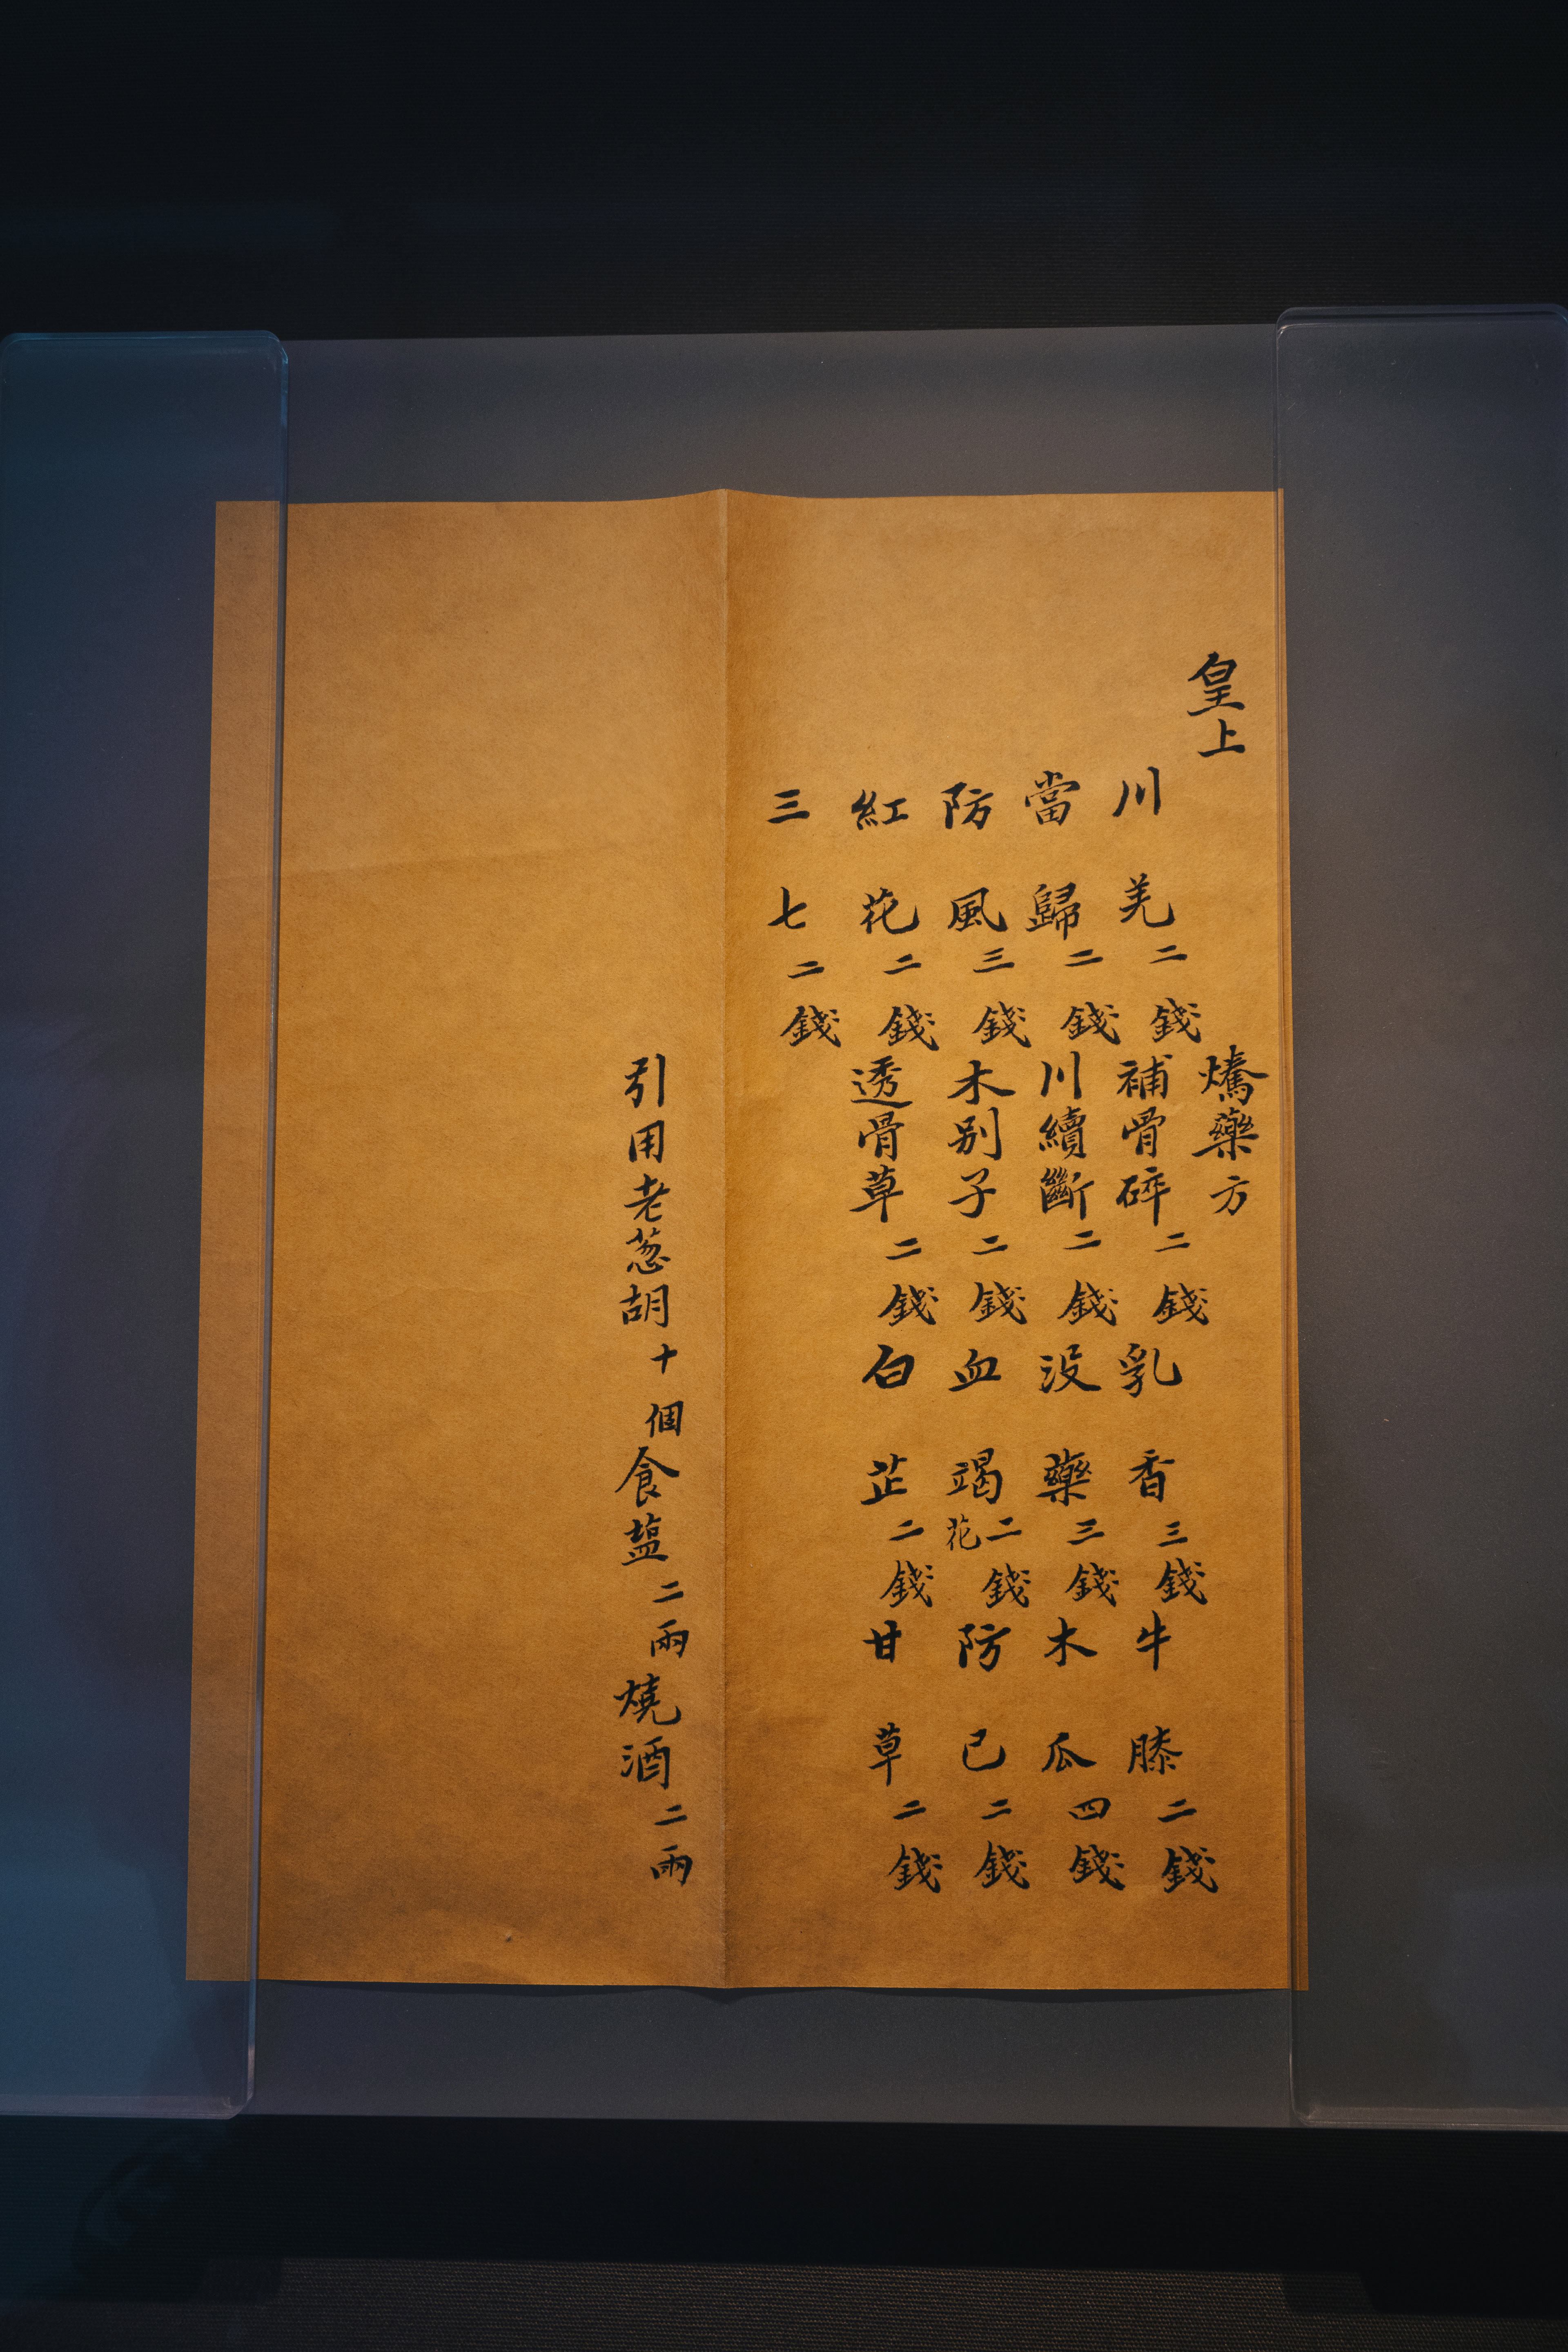 皇上
熥藥方
川羌二錢補骨碎二錢乳香三錢牛膝二錢
當歸二錢川續斷二錢没藥三錢木瓜四錢
防風三錢木别子二錢血竭花二錢防已二錢
紅花二錢透骨草二錢白芷二錢甘草二錢
三七二錢
引用老葱胡十個食塩二兩燒酒二兩